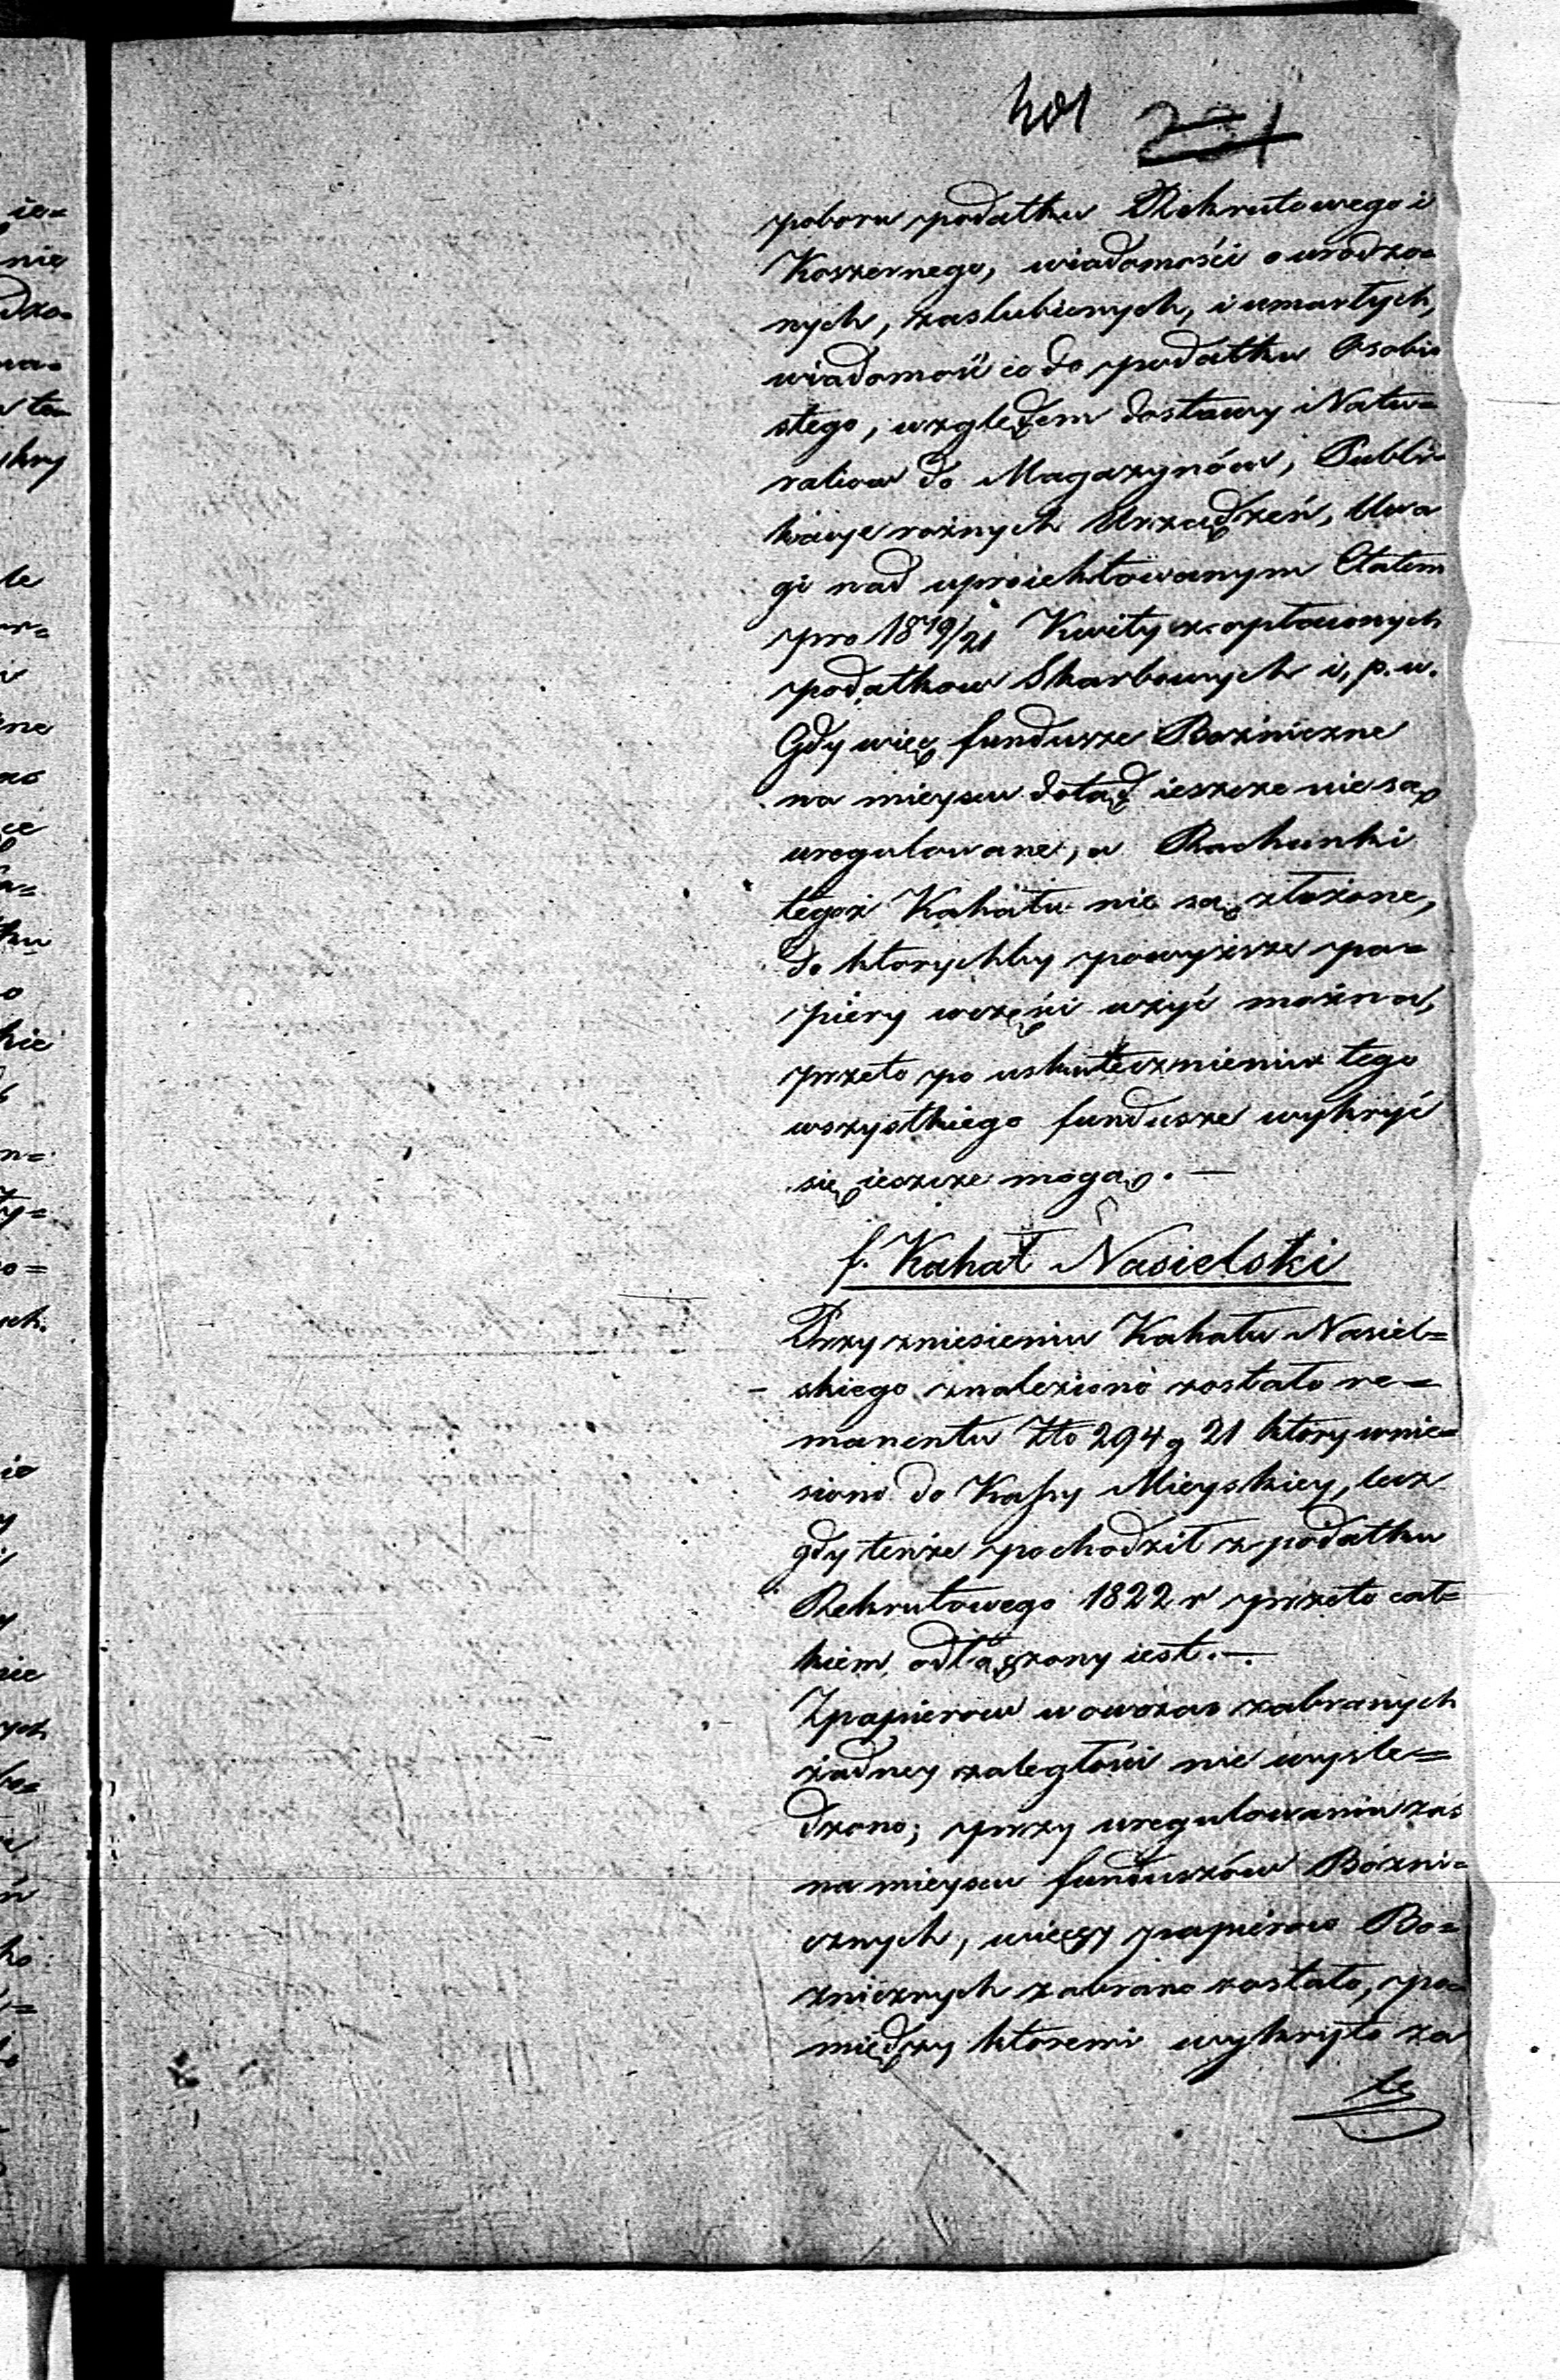 401 231
poboru podatku Rekrutowego i
Koszernego, wiadomości o urodzo=
nych, zaslubionych, i umarłych,
wiadomość co do podatku Osobi=
stego, względem dostawy Natu=
raliow do Magazynów, Publi=
kacye rożnych Urządzeń, Uwa
gi nad uproiektowanym Etatem
pro 1819/21 Kwity z opłaconych
podatkow Skarbowych i, p. w.
Gdy więc fundusze Bożniczne
na mieyscu dotąd ieszcze nie są
uregulowane, a Rachunki
tegoż Kahału nie są złożone,
do ktorychby powyższe pa=
piery wczęści użyć można,
przeto po uskutecznieniu tego
wszystkiego fundusze wykryć
się ieszcze mogą. —
f. Kahał Nasielski
Przy zniesieniu Kahału Nasiel=
skiego znaleziono zostało re=
manentu Złto 294 g 21 ktory wnie=
siono do Kassy Mieyskiey, lecz
gdy tenże pochodził z podatku
Rekrutowego 1822 r przeto cał=
kiem odłączony iest. —
Z papierow wowczas zabranych
żadney zaległości nie wysle=
dzono; przy uregulowaniu zaś
na mieyscu funduszów Bózni=
cznych, więcey papierow Bo=
znicznych zabrano zostało, po=
między ktoremi wykryto za